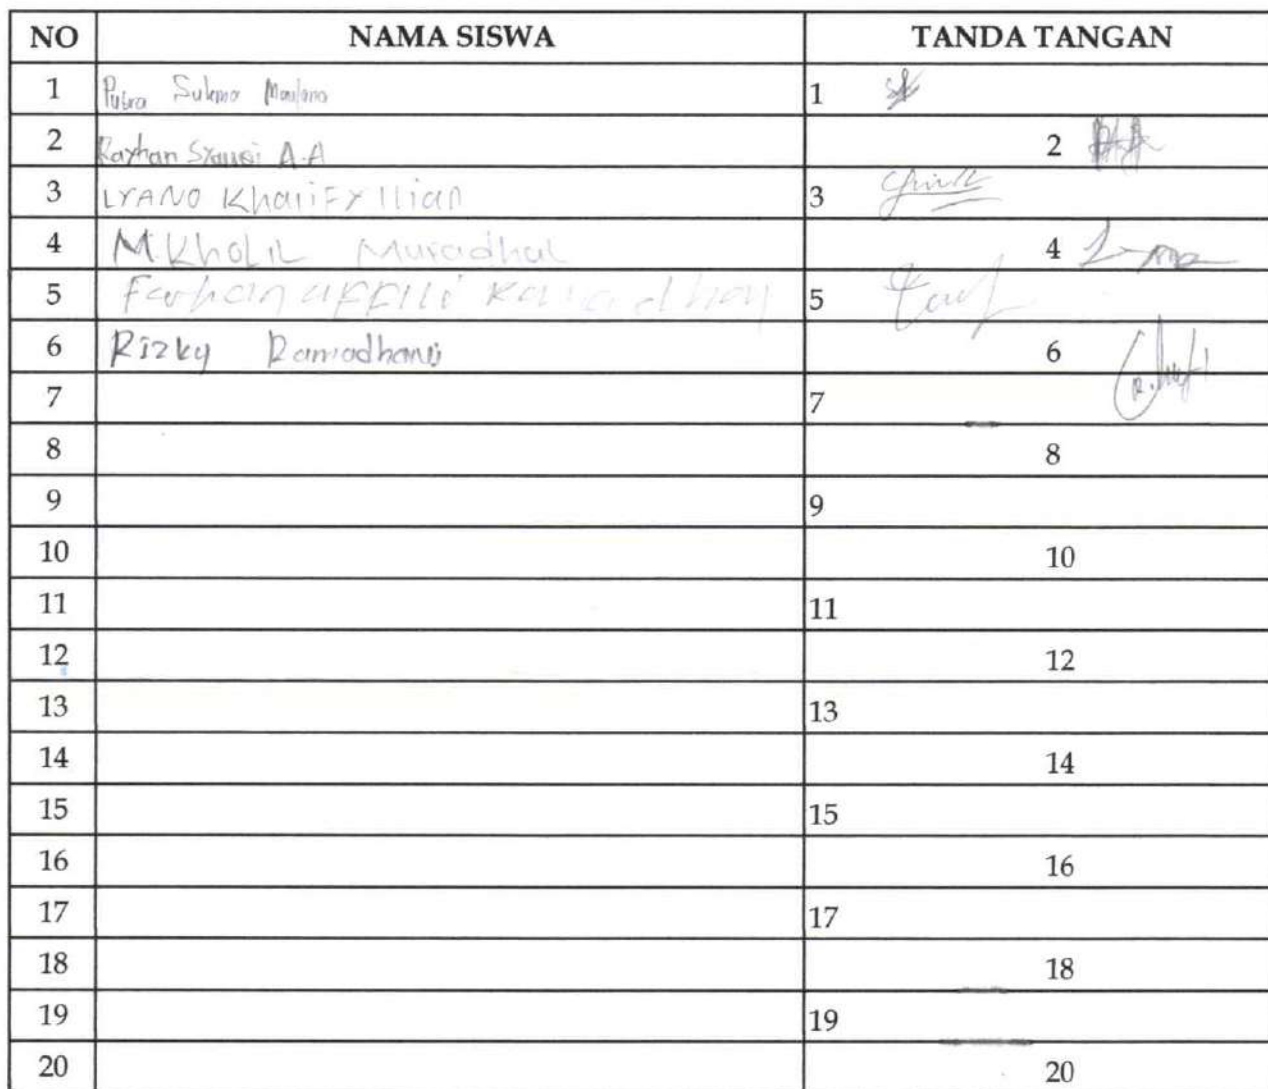 NO NAMA SISWA TANDA TANGAN
1 Putra Sukma Maulana 1
2 Rayhan Syauqi A.A 2
3 LYANO Khalify Ilian 3
4 M.KhoLiL Muradhal 4
5 Farhan 5
6 Rizky Ramadhani 6
7 7
8 8
9 9
10 10
11 11
12 12
13 13
14 14
15 15
16 16
17 17
18 18
19 19
20 20